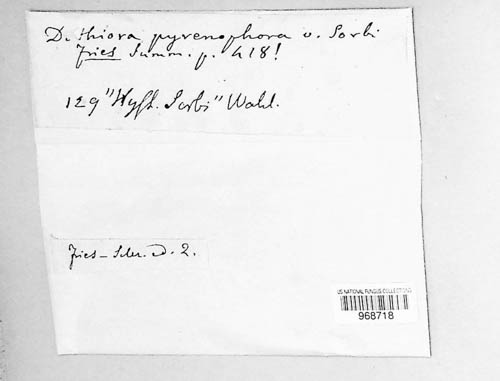 Dothiora pyrenophora v. Sorbi
Fries Summ. p. 418!
129 "Hyst. Sorbi" Wahl.
Fries - Scler. ed. 2.
US NATIONAL FUNGUS COLLECTIONS
968718